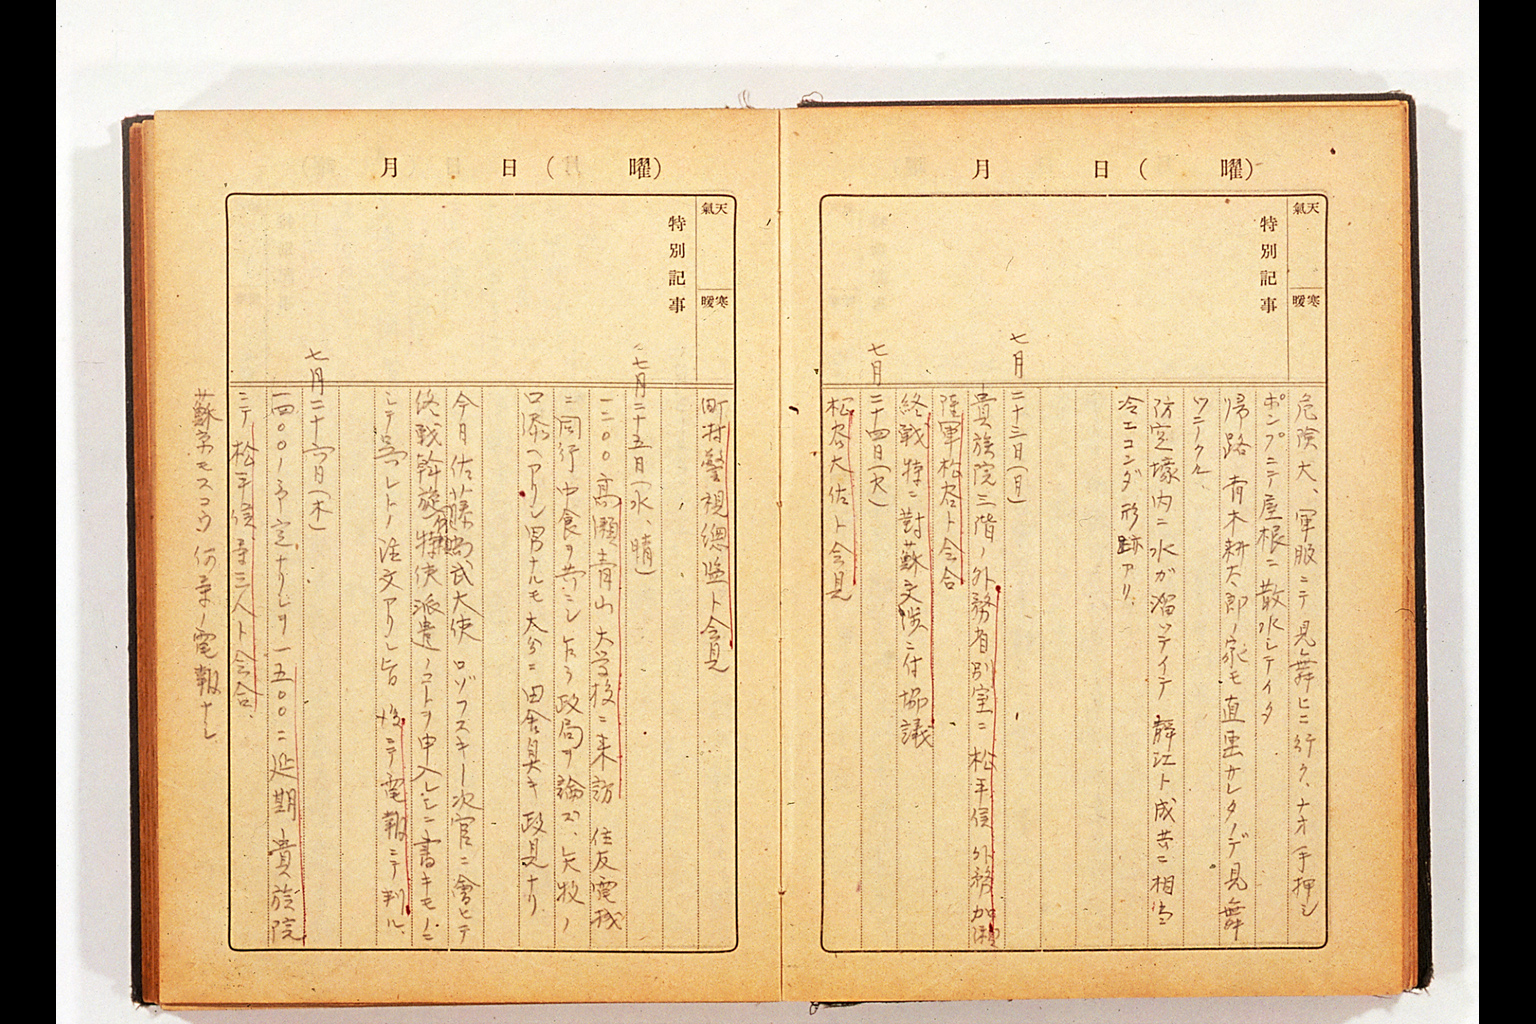 月　日（　曜）
天氣
寒暖
特別記事
危険大、軍服ニテ見舞ヒニ行ク、ナオ手押シ
ポンプニテ屋根ニ散水シテイタ
帰路 青木耕太郎ノ家モ直撃サレタノデ見舞
防空壕内ニ水ガ溜ッテイテ 鯟江ト成共ニ相当
冷エコンダ形跡アリ、
七月二十三日（月）
貴族院三階ノ外務省別室ニ 松平侯 外務加瀬
陸軍松谷ト会合
終戦特ニ對蘇交渉ニ付協議
七月二十四日（火）
松谷大佐ト会見
月　日（　曜）
天氣
寒暖
特別記事
町村警視總監ト会見
七月二十五日（水、晴）
一二〇〇 高瀬青山大学校ニ来訪 住友電機
ニ同行 中食ヲ共ニシ乍ラ政局ヲ論ズ、矢牧ノ
口添ヘアリシ男ナルモ大分ニ田舎臭キ政見ナリ
今日佐藤尚武大使 ロゾフスキー次官ニ會ヒテ
終戦斡旋特使派遣ノコトヲ申入レシニ書キモノニ
シテ呉レトノ注文アリシ旨 後ニテ電報ニテ判ル
七月二十六日（木）
一四〇〇ノ予定ナリシヲ一五〇〇ニ延期 貴族院
ニテ松平侯等三人ト会合、
蘇京モスコウ何等ノ電報ナシ